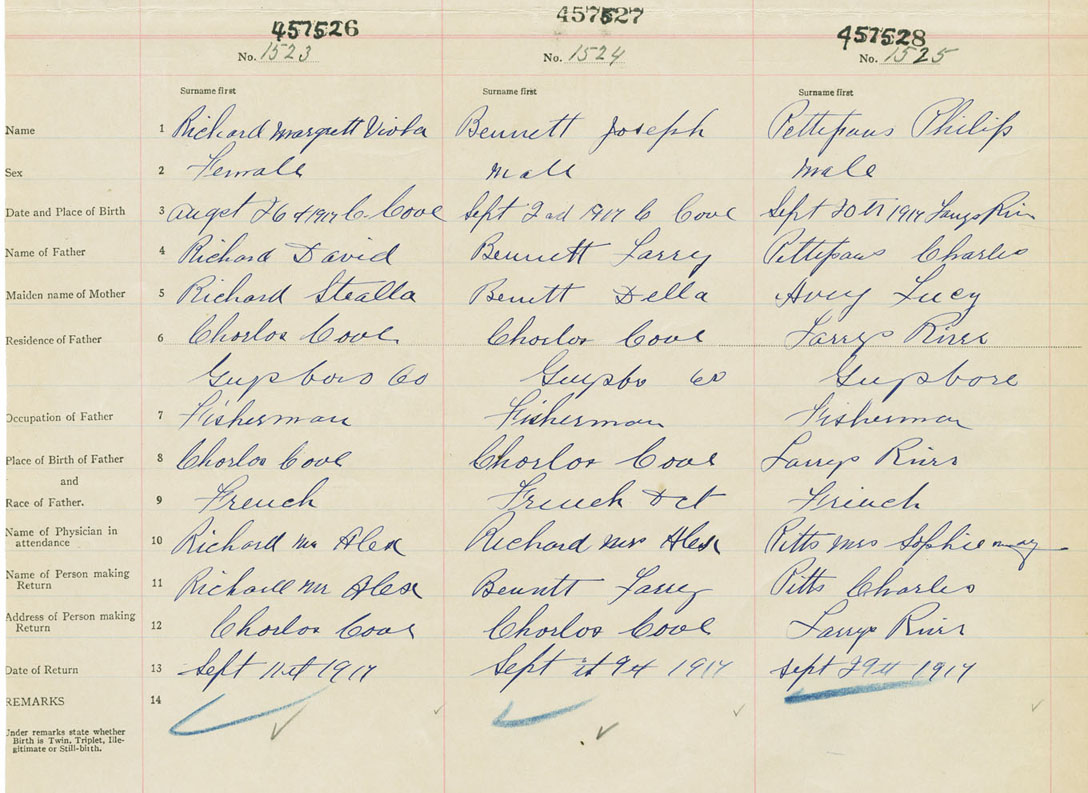 457526 457527 457528
No. 1523 No. 1524 No. 1525
Surname first Surname first Surname first
Name 1 Richard Margrett Viola Bennett Joseph Pettipaus Philip
Sex 2 Female Male Male
Date and Place of Birth 3 Auget 26 1917 C. Cove Sept 2nd 1917 C Cove Sept 20th 1917 Larrys River
Name of Father 4 Richard David Bennett Larry Pettipaus Charles
Maiden name of Mother 5 Richard Stealla Benett Della Avery Lucy
Residence of Father 6 Chorlos Cove Chorlos Cove Larrys River
Guysboro Co Guysbo Co Guysbore
Occupation of Father 7 Fisherman Fisherman Fisherman
Place of Birth of Father 8 Chorlos Cove Chorlos Cove Larrys River
and
Race of Father. 9 French French French
Name of Physician in 10 Richard Mrs Alex Richard Mrs Alex Pitts Mrs Sophie May
attendance
Name of Person making 11 Richard Mr Alex Bennett Larry Pitts Charles
Return
Address of Person making 12 Chorlos Cove Chorlos Cove Larrys River
Return
Date of Return 13 Sept 11 1917 Sept 1917 Sept 29th 1917
REMARKS 14
Under remarks state whether
Birth is Twin, Triplet, Ille-
gitimate or Still-birth.